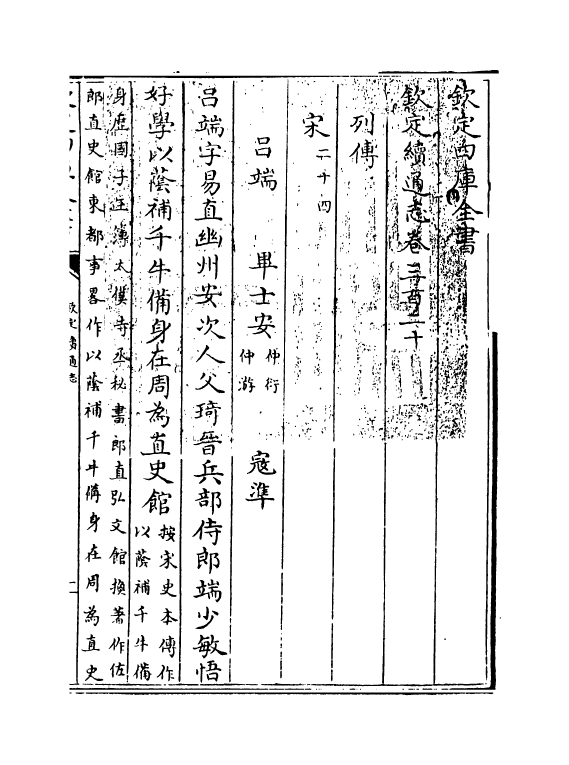 欽定四庫全書
欽定續通志卷三百二十
列傳
宋二十四
吕端　畢士安仲衍仲游　寇準
吕端字易直幽州安次人父琦晉兵部侍郎端少敏悟
好學以蔭補千牛備身在周為直史館按宋史本傳作以蔭補千牛備
身歷國子主簿太僕寺丞秘書郎直弘文館換著作佐
郎直史館東都事畧作以蔭補千牛備身在周為直史
欽定續通志
一